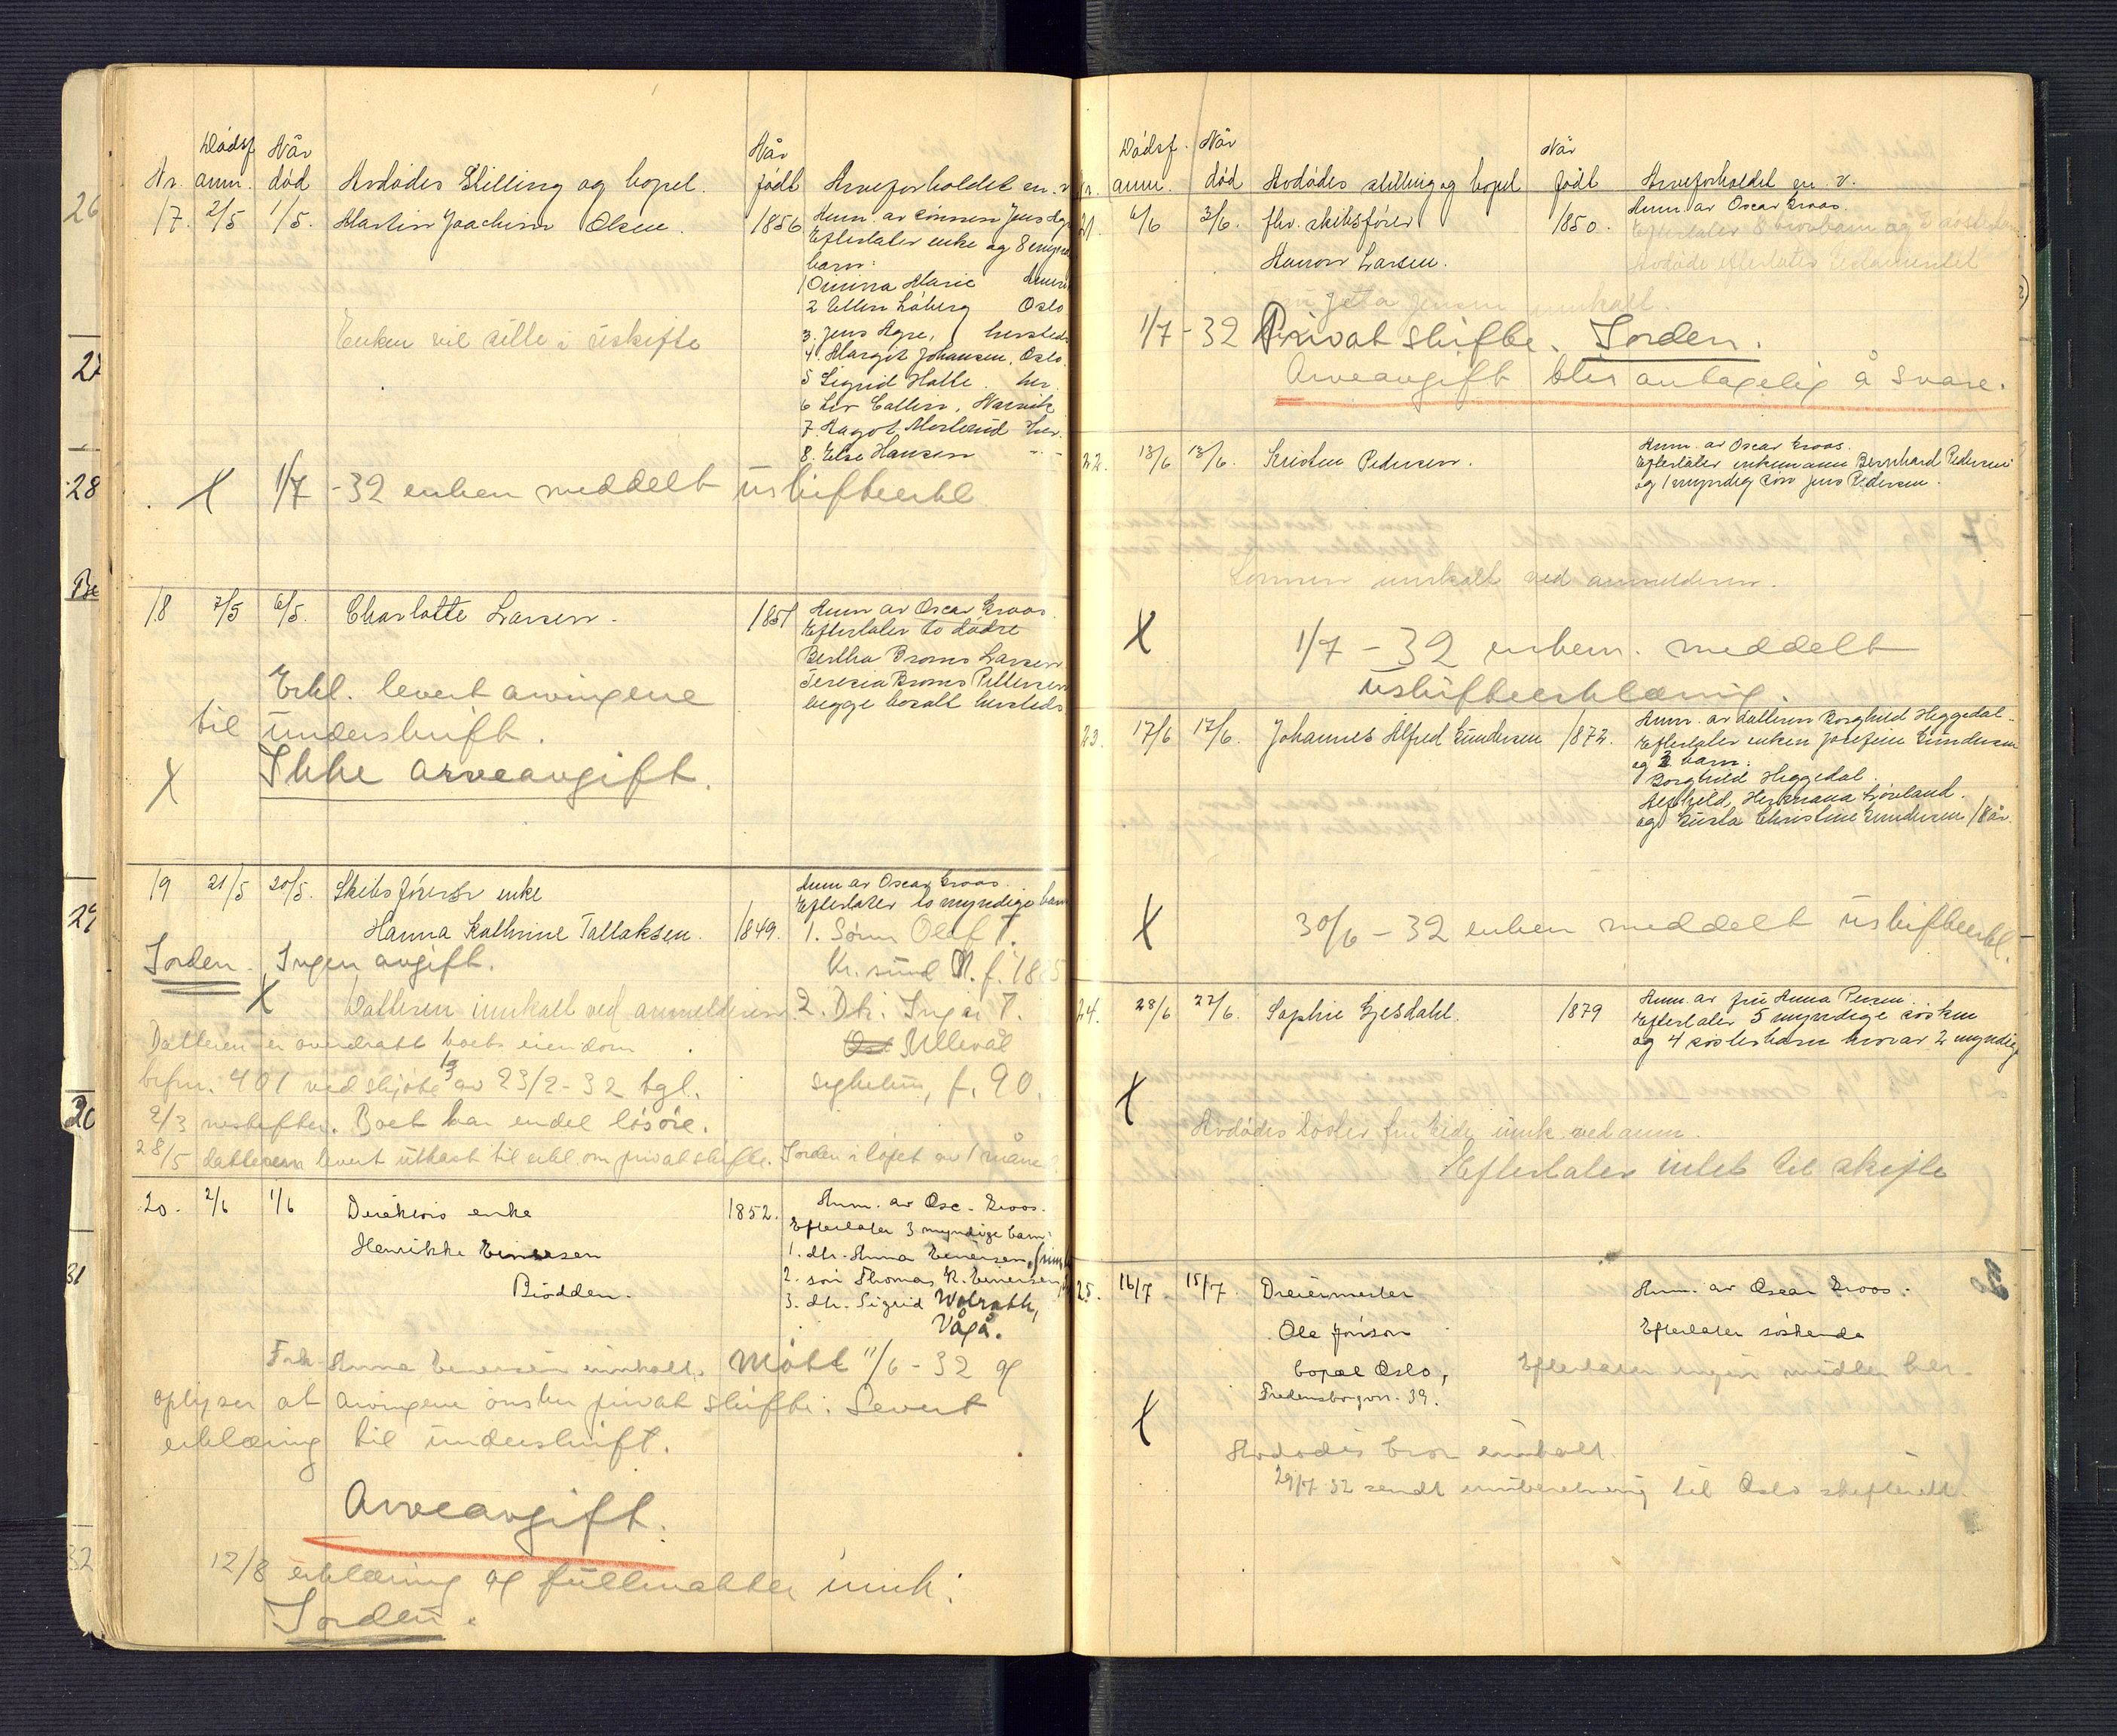 Dødsf. Når Når
Nr. anm. død Avdødes Stilling og bopel. født Arveforholdet m. v.
17. 2/5 1/5. Martin Joachim Olsen. 1856 Anm. av sønnen Jens Agre
Efterlater enke og 8 myndige
barn:
1 Marie
2 Ellen Løberg Oslo
Enken vil sitte i uskifte
3. Jens Agre, hersteds
4. Margit Johansen, Oslo.
5 Sigrid Halle. her.
6 Narvik
7. Dagot her.
8. Else Hansen - " -
X 1/7 - 32 enken meddelt uskifteerkl.
18 7/5 6/5. Charlotte Larsen. 1851 Anm av Oscar Groos.
Efterlater to døtre
Bertha Broms Larsen
Teresia Broms Pettersen
begge bosatt hersteds.
Erkl. levert arvingene
til underskrift.
X Ikke arveavgift.
19 21/5 20/5. Skibsførers enke Anm av Oscar Groos.
Efterlater to myndige barn
Hanna Kathrine Tallaksen. 1849. 1. Sønn Olaf T.
Kr. sund N. f. 1885
Iorden. Ingen avgift.
X Datteren innkalt ved anmelderen. 2. Dtr. Inga T.
Ullevål
sykehus, f. 90.
Datteren er overdratt boets eiendom
brfnr. 401 ved skjøte av 23/2 - 32 tgl.
2/3 nestefter. Boet har endel løsøre.
28/5 datteren levert utkast til erkl. om privat skifte. Iorden i løpet av 1 måned
20. 2/6 1/6 Direktørs enke 1852. Anm. av Osc. Groos.
Efterlater 3 myndige barn:
Henrikke Einersen 1. dtr. Anna Einersen,
2. søn Thomas R. Einersen
Brødden. 3. dtr. Sigrid Walrath,
Vågå.
Frk. Anna Einersen innkalt. Møtt 11/6 - 32 og
oplyser at arvingene ønsker privat skifte. Levert
erklæring til underskrift.
Arveavgift.
12/8 erklæring og fullmakter innk.
Iorden.
Dødsf. Når Når
Nr. anm. død Avdødes stilling og bopel født Arveforholdet m. v.
21. 6/6 3/6. fhv. skibsfører 1850. Anm. av Oscar Groos.
Efterlater 8 brorbarn og 2 søsterbarn
Hanson Larsen. Avdøde efterlater testamentet
Jensen innkalt.
1/7 - 32 Privat skifte. Iorden.
Arveavgift blir antagelig å svare.
22. 13/6 13/6. Kristen Pedersen. Anm. av Oscar Groos.
Efterlater enkemann Bernhard Pedersen
og 1 myndig søn Jens Pedersen.
Sønnen innkalt ved anmelderen.
X 1/7 - 32 enkem. meddelt
uskifteerklæring.
23. 17/6 17/6. Johannes Alfred Gundersen 1872. Anm. av datteren Borghild Heggedal.
Efterlater enken Josefine Gundersen
og 3 barn:
Borghild Heggedal.
Alfhild Hermana
og Christine Gundersen 18 år.
X 30/6 - 32 enken meddelt uskifteerkl.
24. 28/6 27/6. Sophie Gjesdahl. 1879 Anm. av fru Anna
Efterlater 5 myndige søsken
og 4 søsterbarn hvorav 2 myndige
X Avdødes søster fru Eide innk. ved anm.
Efterlater intet til skifte
25. 16/7 15/7. Dreiermester Anm. av Oscar Groos.
Ole Jonson Efterlater søskende
bopæl Oslo, Efterlater ingen midler her.
Fredensborgvn. 39.
X Avdødes bror innkalt.
29/7 32 sendt innberetning til Oslo skifterett.